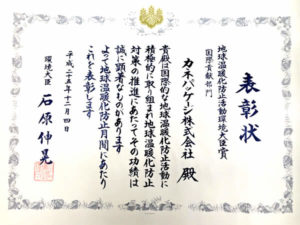 表彰状
地球温暖化防止活動環境大臣賞
国際貢献部門
カネパッケージ株式会社 殿
貴殿は国際的な地球温暖化防止活動に
積極的に取り組まれ地球温暖化防止
対策の推進にあたってその功績は
誠に顕著なものがあります
よって地球温暖化防止月間にあたり
これを表彰します
平成二十五年十二月四日
環境大臣 石原伸晃